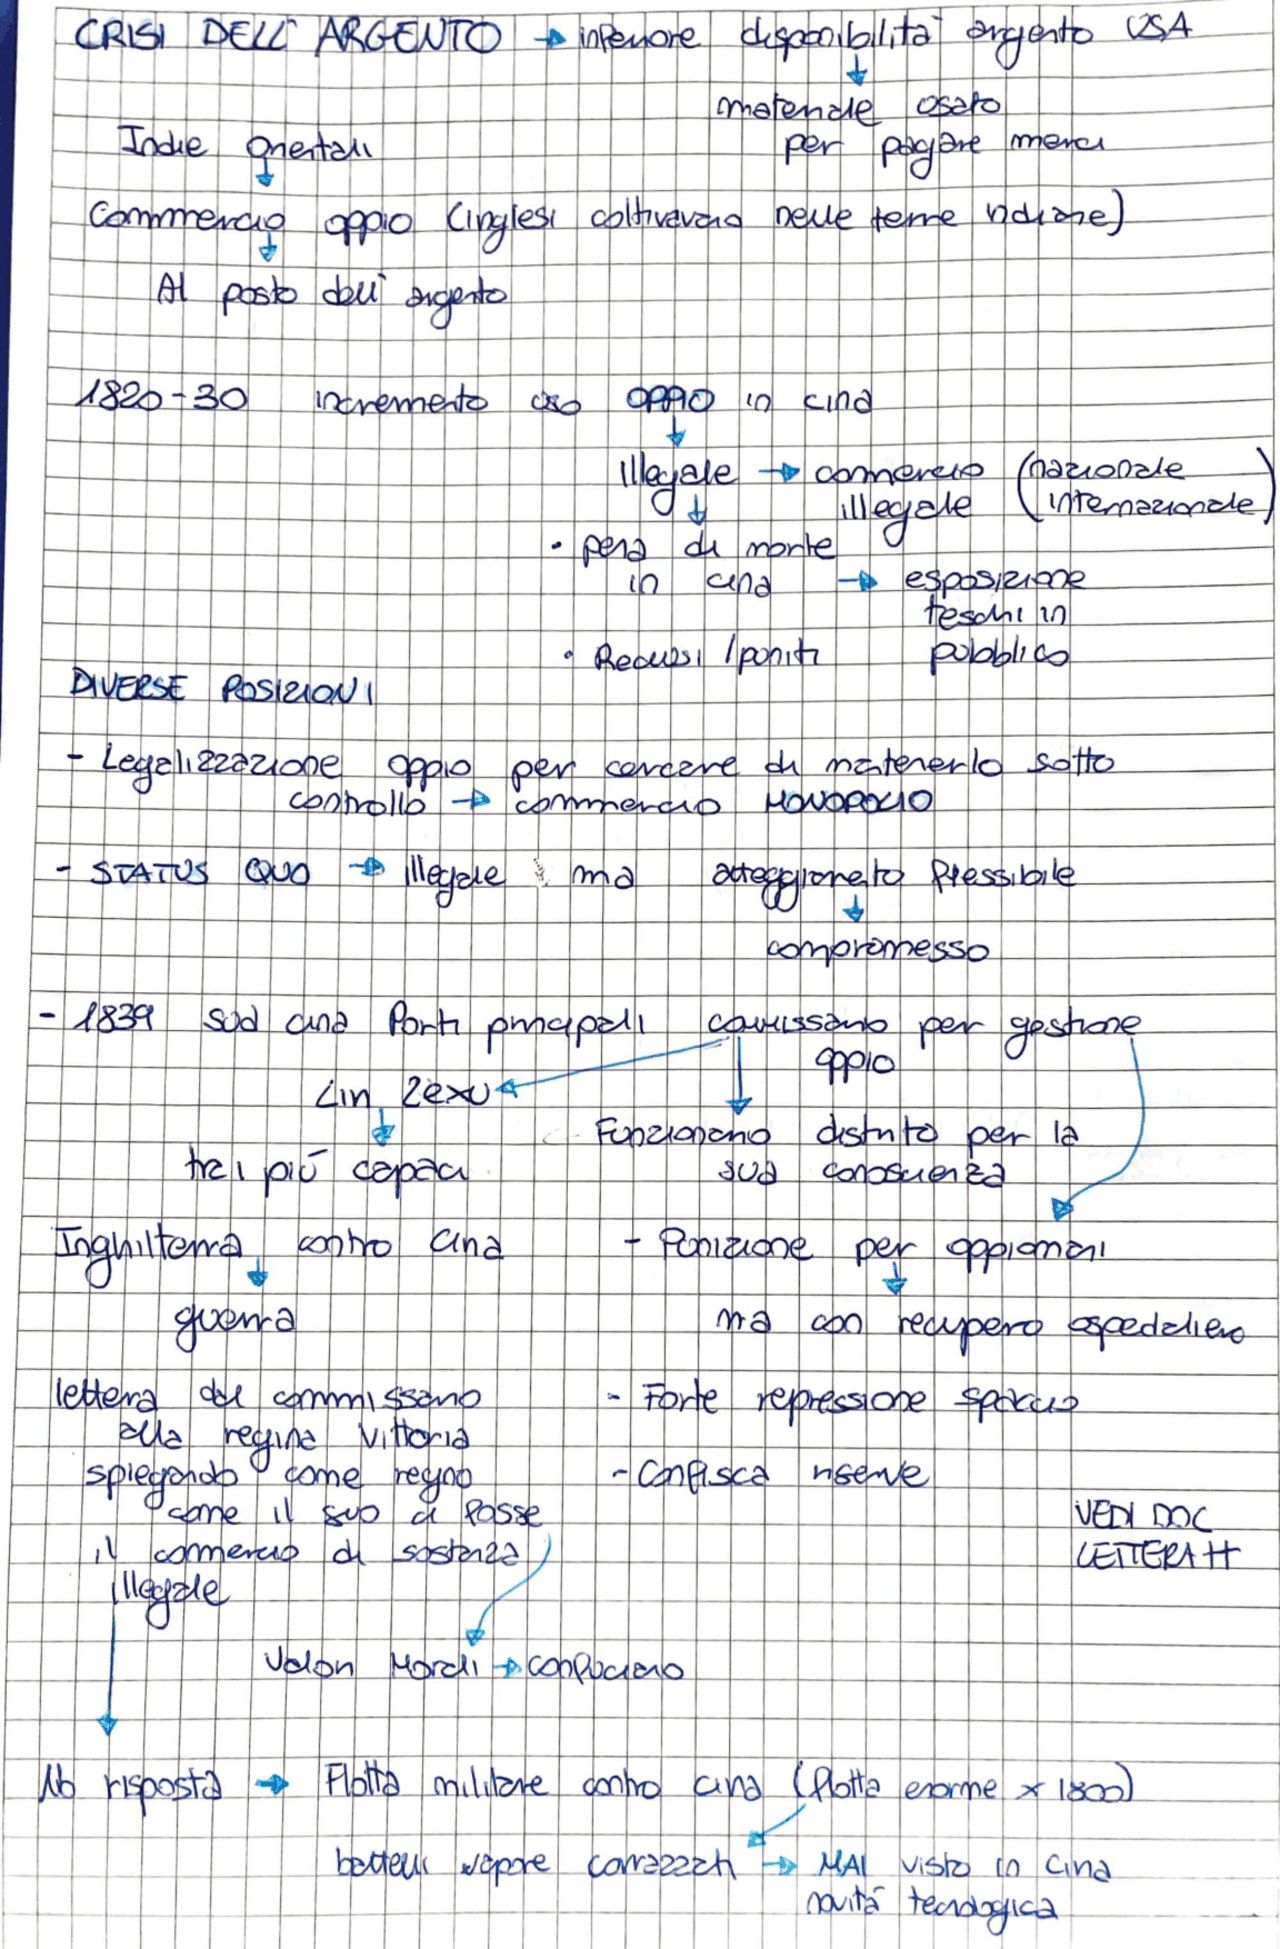 CRISI DELL'ARGENTO → inferiore disponibilità argento USA
materiale usato
per pagare merci
Indie orientali
Commercio oppio (inglesi coltivavano nelle terre indiane)
Al posto dell'argento
1820-30 incremento uso OPPIO in cina
illegale → commercio (nazionale
illegale internazionale)
• pena di morte
in cina → esposizione
teschi in
• Reclusi / puniti pubblico
DIVERSE POSIZIONI
- Legalizzazione oppio per cercare di mantenerlo sotto
controllo → commercio MONOPOLIO
- STATUS QUO → illegale ma atteggiamento flessibile
compromesso
- 1839 sud cina Porti principali commissario per gestione
oppio
Lin Zexu
Funzionario distinto per la
tra i più capaci sua conoscienza
Inghilterra contro cina - Punizione per oppiomani
guerra ma con recupero ospedaliero
lettera del commissario - Forte repressione spaccio
alla regina Vittoria
spiegando come regno - Confisca riserve
come il suo ci fosse VEDI DOC
il commercio di sostanza LETTERA H
illegale
Valori Morali → confuciano
No risposta → Flotta militare contro cina (flotta enorme x 1800)
battelli vapore corrazzati → MAI visto in cina
novità tecnologica